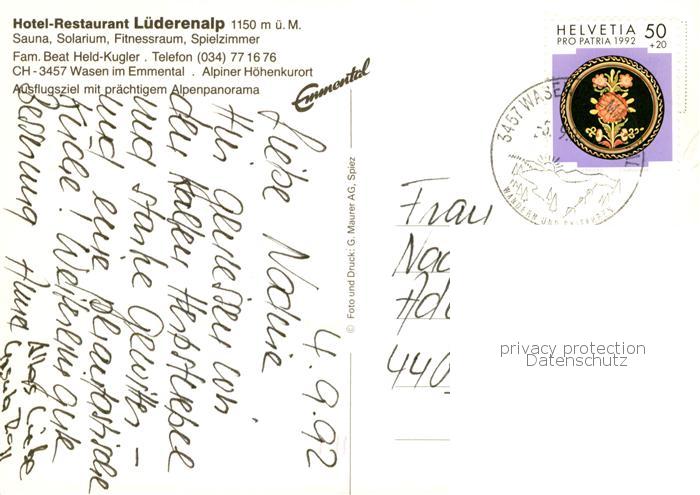 Hotel-Restaurant Lüderenalp 1150 m ü. M.
Sauna, Solarium, Fitnessraum, Spielzimmer
Fam. Beat Held-Kugler . Telefon (034) 77 16 76
CH - 3457 Wasen im Emmental . Alpiner Höhenkurort
Ausflugsziel mit prächtigem Alpenpanorama
Emmental
4.9.92
Liebe Nadine
Hier geniessen wir
der kalten Herbstnebel
und starke Gewitter –
und eine phantastische
Küche! Weiterhin gute
Besserung
Alles Liebe
© Foto und Druck: G. Maurer AG, Spiez
HELVETIA 50
PRO PATRIA 1992 +20
3457 WASEN
WANDERN UND
Frau
Nad
Adl
440
privacy protection
Datenschutz